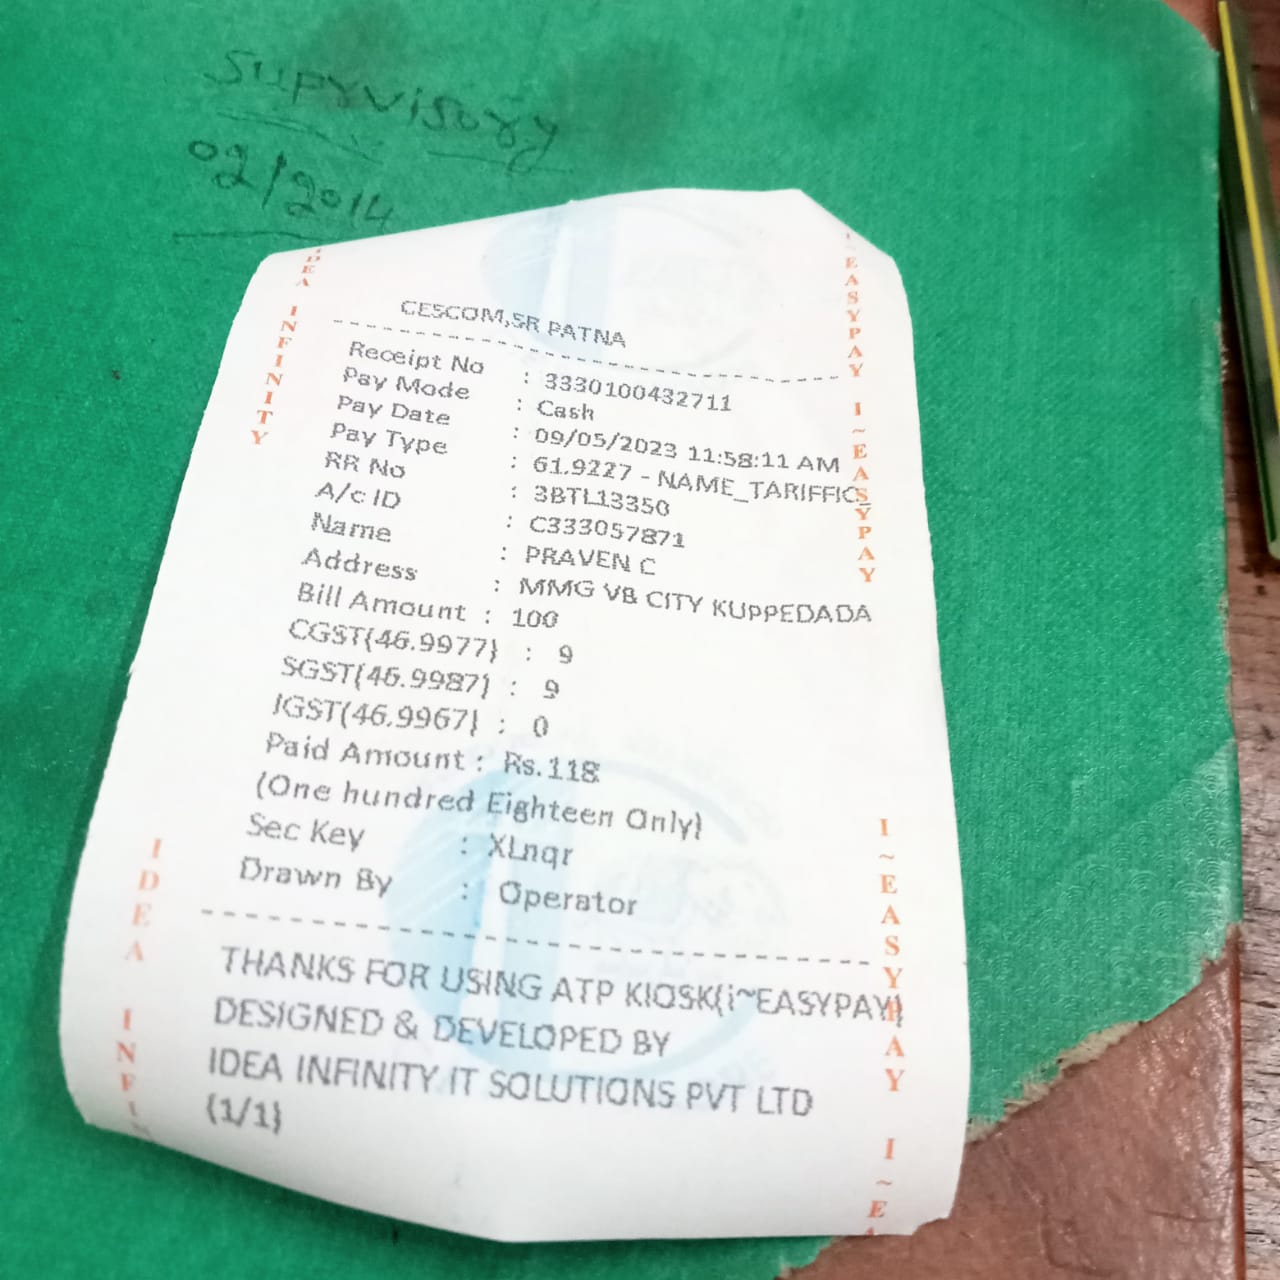 Supyvisory
02/2014
CESCOM,SR PATNA
Receipt No : 3330100432711
Pay Mode : Cash
Pay Date : 09/05/2023 11:58:11 AM
Pay Type : 61.9227 - NAME_TARIFFIC_
RR No : 3BTL13350
A/c ID : C333057871
Name : PRAVEN C
Address : MMG VB CITY KUPPEDADA
Bill Amount : 100
CGST(46.9977) : 9
SGST(46.9987) : 9
IGST(46.9967) : 0
Paid Amount : Rs.118
(One hundred Eighteen Only)
Sec Key : XLnqr
Drawn By : Operator
THANKS FOR USING ATP KIOSK(i~EASYPAY)
DESIGNED & DEVELOPED BY
IDEA INFINITY IT SOLUTIONS PVT LTD
(1/1)
IDEA INFINITY
IDEA INFIN
I~EASYPAY I~EASYPAY
I~EASYPAY I~EA